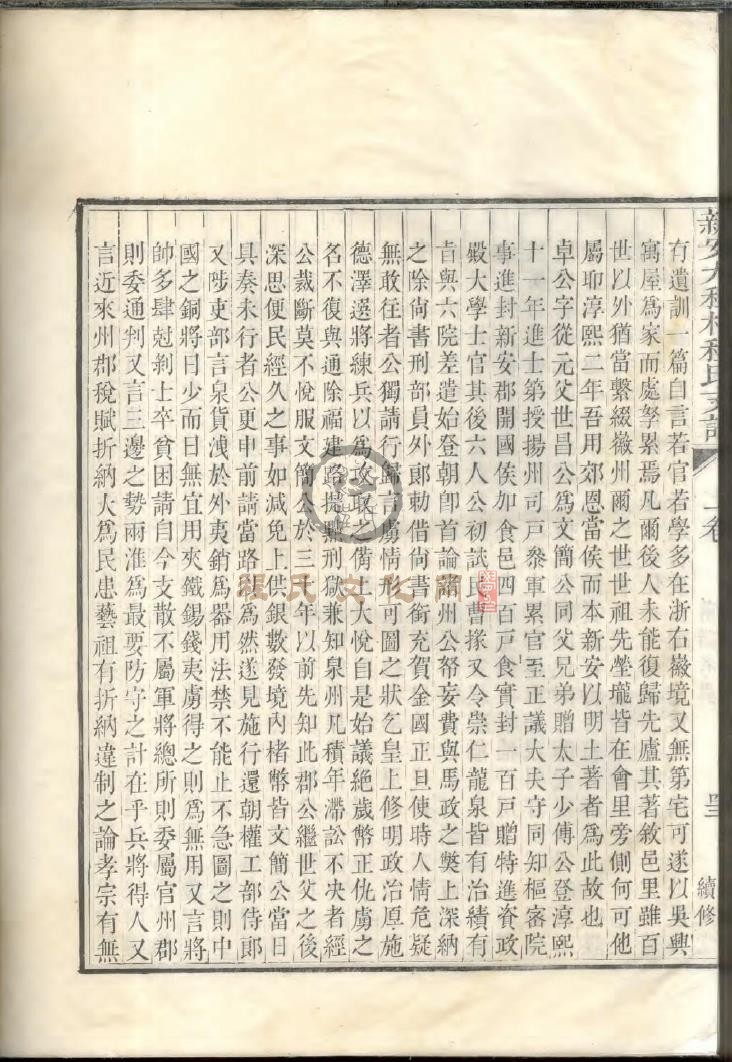 新安大程村程氏支譜
一卷
續修
有遺訓一篇自言若官若學多在浙右徽境又無第宅可遂以吳興
寓屋爲家而處孥累焉凡爾後人未能復歸先廬其著敘邑里雖百
世以外猶當繫綴徽州爾之世世祖先塋壠皆在會里旁側何可他
屬耶淳熙二年吾用郊恩當侯而本新安以明土著者爲此故也
卓公字從元父世昌公爲文簡公同父兄弟贈太子少傅公登淳熙
十一年進士第授揚州司戸叅軍累官至正議大夫守同知樞宻院
事進封新安郡開國侯加食邑四百戸食實封一百戸贈特進資政
殿大學士官其後六人公初試民曹掾又令崇仁龍泉皆有治績有
㫖與六院差遣始登朝卽首論 州公帑妄費與馬政之獘上深納
之除尙書刑部員外郞勅借尙書銜充賀金國正旦使時人情危疑
無敢往者公獨請行歸言虜情形可圖之狀乞皇上修明政治厚施
德澤選將練兵以爲攻取之備上大悅自是始議絕歲幣正仇虜之
名不復與通除福建路提點刑獄兼知泉州凡積年滯訟不决者經
公裁斷莫不悅服文簡公於三 年以前先知此郡公繼世父之後
深思便民經久之事如減免上供銀數發境內楮幣皆文簡公當日
具奏未行者公更申前請當路 爲然遂見施行還朝權工部侍郞
又陟吏部言泉貨洩於外夷銷爲器用法禁不能止不急圖之則中
國之銅將日少而日無宜用夾鐵錫錢夷虜得之則爲無用又言將
帥多肆尅剝士卒貧困請自今支散不屬軍將總所則委屬官州郡
則委通判又言三邊之勢兩淮爲最要防守之計在乎兵將得人又
言近來州郡稅賦折納大爲民患藝祖有折納違制之論孝宗有無